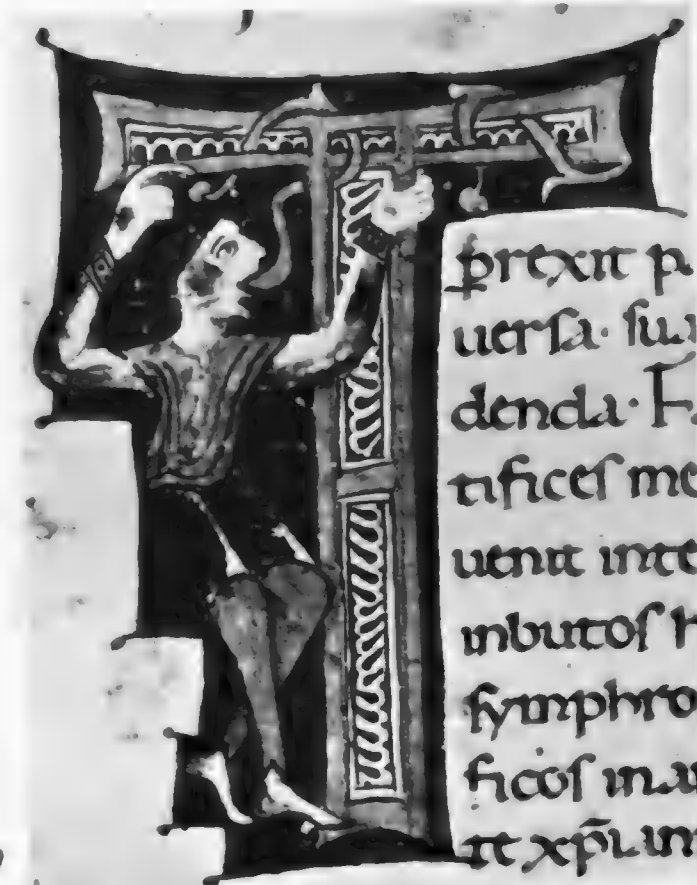 T
ꝑrexit p
uerſa· ſua
denda· H
tificeſ me
uenit inte
inbutoſ h
ſymphro
ficoſ in a
nt xp̄ian